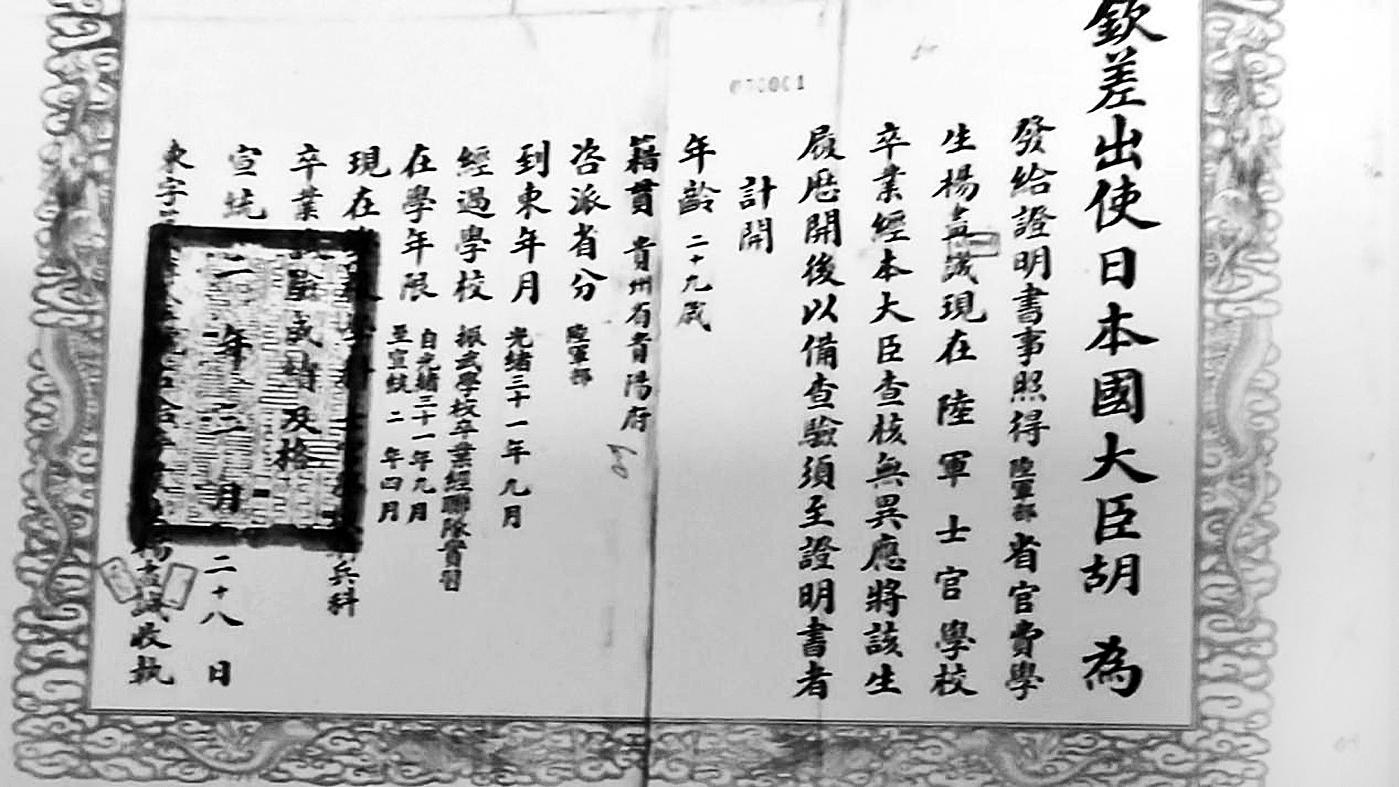 欽差出使日本國大臣胡 為
發給證明書事照得陸軍部省官費學
生楊藎誠現在陸軍士官學校
卒業經本大臣查核無異應將該生
履歷開後以備查驗須至證明書者
計開
年齡 二十九歲
籍貫 貴州省貴陽府
咨派省分 陸軍部
到東年月 光緒三十一年九月
經過學校 振武學校卒業經聯隊實習
在學年限 自光緒三十一年九月
至宣統二年四月
現在 兵科
卒業 成績及格
宣統二年三月二十八日
東字 楊藎誠收執